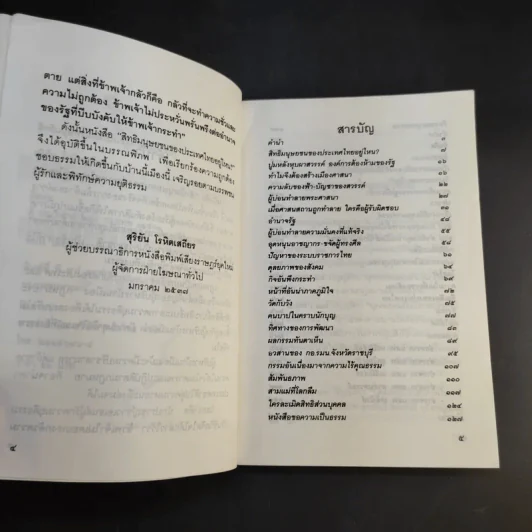 ตาย แต่สิ่งที่ข้าพเจ้ากลัวก็คือ กลัวที่จะทำความชั่วและ
ความไม่ถูกต้อง ข้าพเจ้าไม่ประหวั่นพรั่นพรึงต่ออำนาจ
ของรัฐที่บีบบังคับให้ข้าพเจ้ากระทำ"
ดังนั้นหนังสือ "สิทธิมนุษยชนของประเทศไทยอยู่ไหน?"
จึงได้อุบัติขึ้นในบรรณพิภพ เพื่อเรียกร้องความถูกต้อง
ชอบธรรมให้เกิดขึ้นกับบ้านนี้เมืองนี้ เจริญรอยตามบรรพชน
ผู้รักและพิทักษ์ความยุติธรรม
สุริยัน โรหิตเสถียร
ผู้ช่วยบรรณาธิการหนังสือพิมพ์เสียงราษฎร์ยุคใหม่
ผู้จัดการฝ่ายโฆษณาทั่วไป
มกราคม ๒๕๓๗
๔
สารบัญ
คำนำ ๓
สิทธิมนุษยชนของประเทศไทยอยู่ไหน? ๗
ปูมหลังหุบผาสวรรค์ องค์การต้องห้ามของรัฐ ๑๖
ทำไมจึงต้องสร้างเมืองศาสนา ๑๖
ความลับของฟ้า-บัญชาของสวรรค์ ๒๒
ผู้บ่อนทำลายพระศาสนา ๒๗
เมื่อศาสนสถานถูกทำลาย ใครคือผู้รับผิดชอบ ๓๑
อำนาจรัฐ ๔๘
ผู้บ่อนทำลายความมั่นคงที่แท้จริง ๕๕
อุดหนุนอาชญากร-ขจัดผู้ทรงศีล ๕๘
ปัญหาของระบบราชการไทย ๖๒
ดุลยภาพของสังคม ๖๔
กิจอันพึงกระทำ ๖๙
หน้าที่อันน่าภาคภูมิใจ ๗๒
วัดกับวัง ๗๕
คนบาปในคราบนักบุญ ๗๗
ทิศทางของการพัฒนา ๘๓
ผลกรรมทันตาเห็น ๘๙
อวสานของ กอ.รมน.จังหวัดราชบุรี ๙๕
กรรมอันเนื่องมาจากความไร้คุณธรรม ๑๐๗
สัมพันธภาพ ๑๑๐
สามแม่ที่โลกลืม ๑๑๗
ใครละเมิดสิทธิส่วนบุคคล ๑๒๔
หนังสือขอความเป็นธรรม ๑๒๗
๕